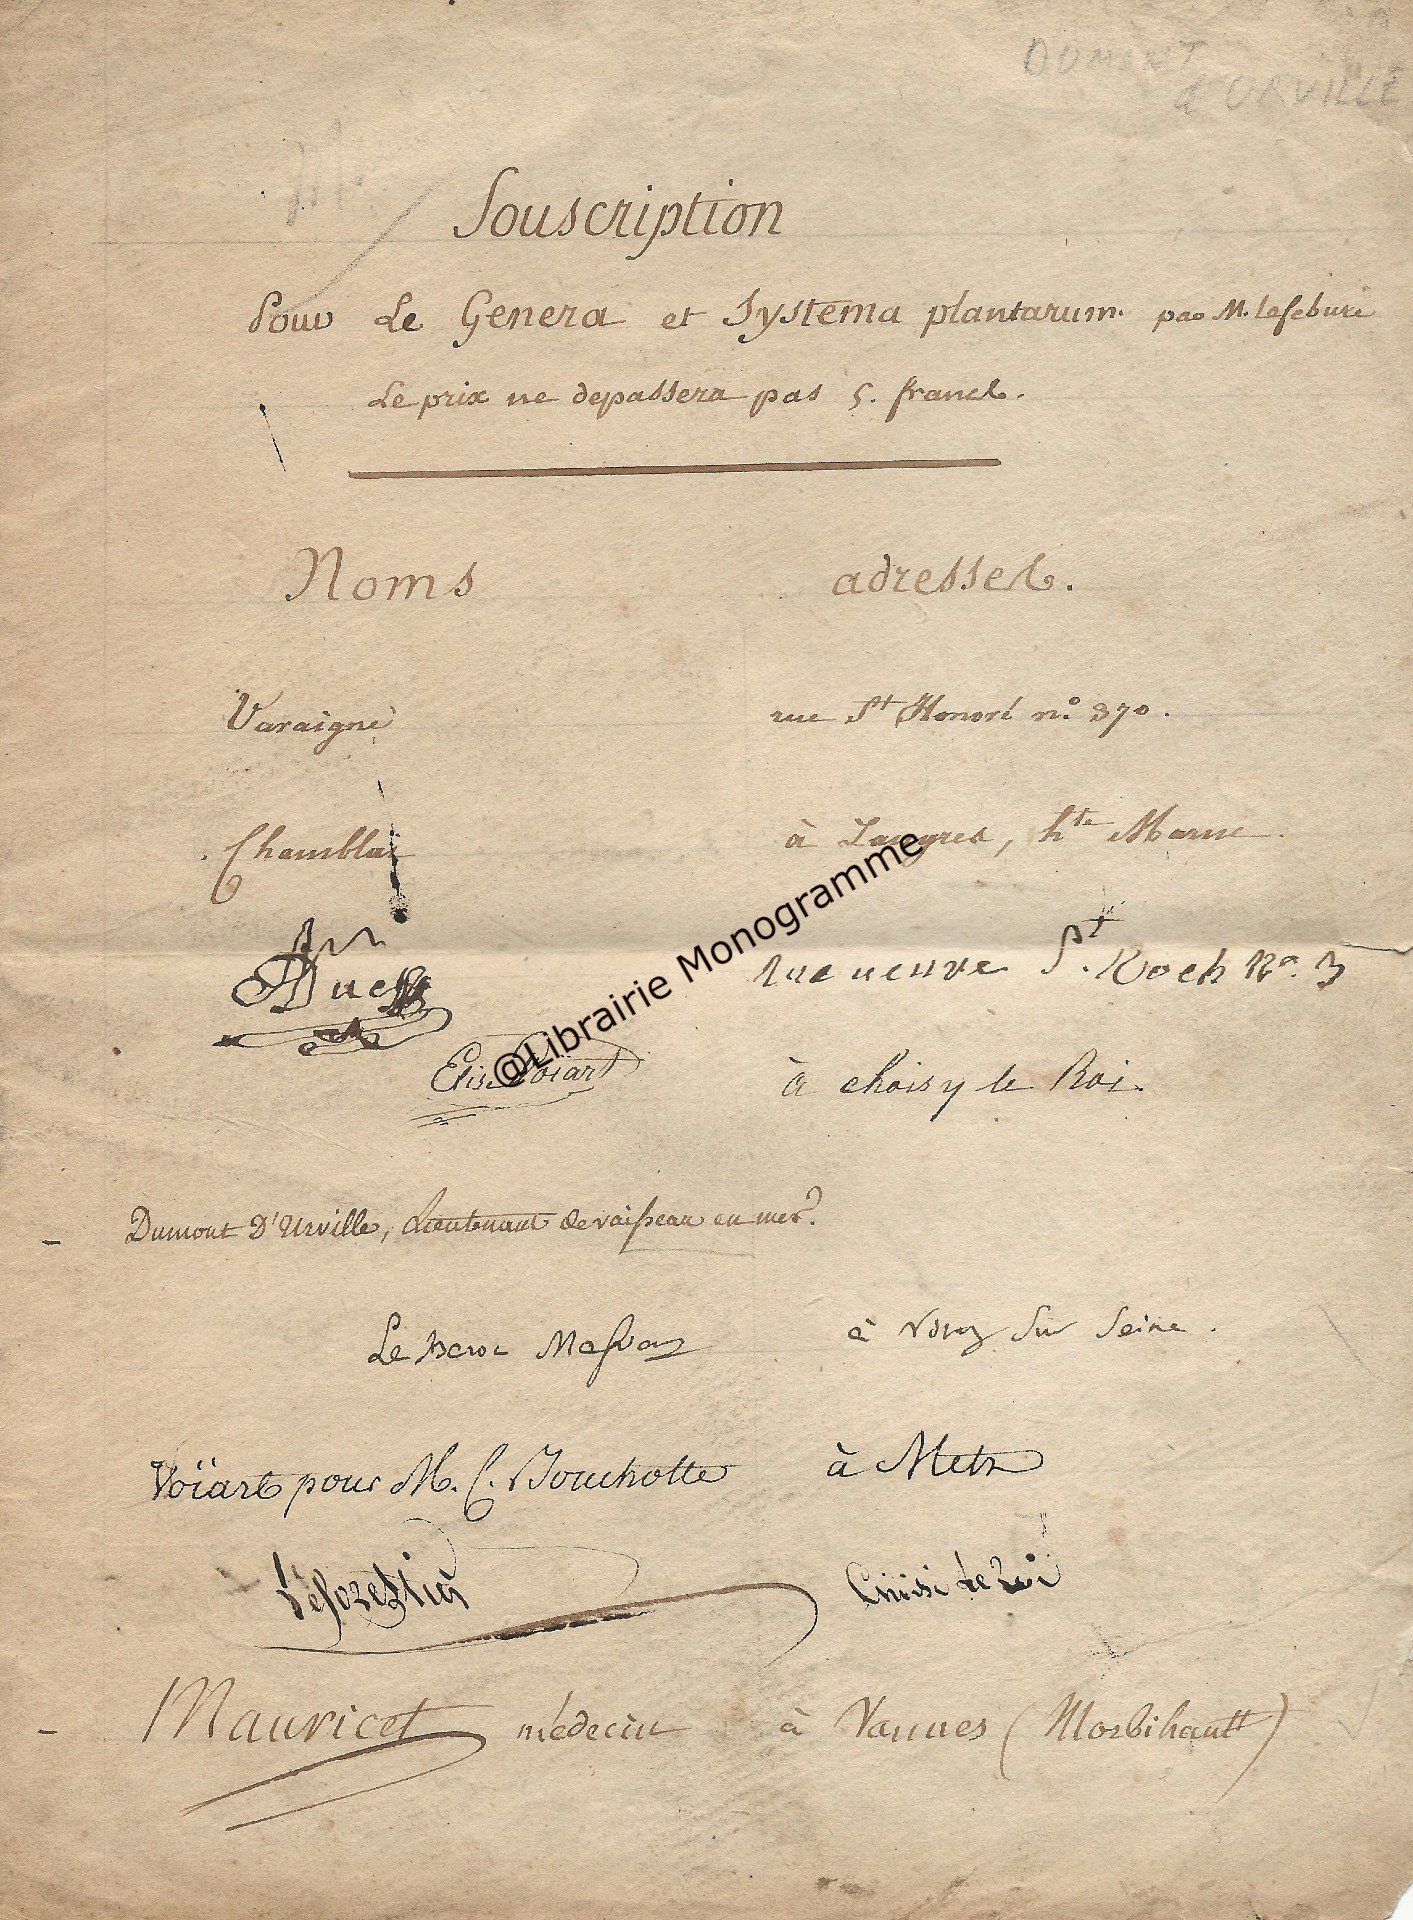 DUMONT
d'URVILLE
Souscription
Pour Le Genera et Systema plantarum. par M. Lefebure
Le prix ne depassera pas 5. francs.
Noms adresses.
Varaigne rue St Honoré n.º 370.
Chamblai à Langres, hte Marne.
rue neuve St. Roch No. 3
Elise Voïart à choisy le Roi.
Dumont D'Urville, Lieutenant de vaisseau en mer.
à Vitry sur Seine.
Voïart pour M. C. Bouchotte à Metz
Leforestier Choisi le Roi
Mauricet médecin à Vannes (Morbihantt)
@Librairie Monogramme